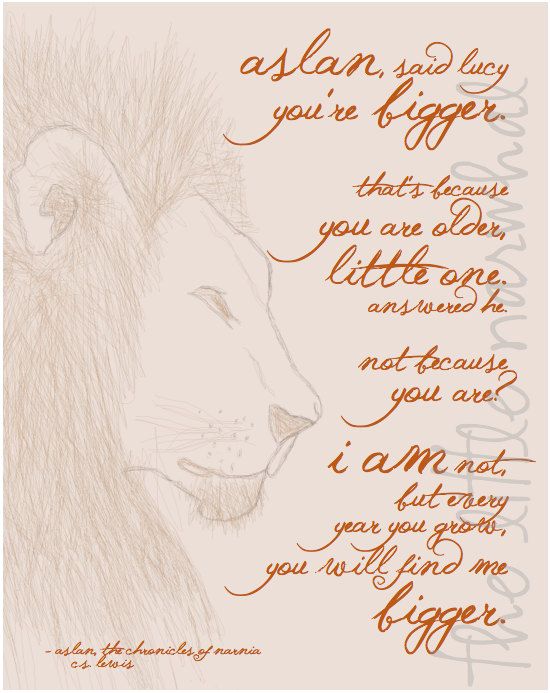 aslan, said lucy
you're bigger.
that's because
you are older,
little one.
answered he.
not because
you are?
i am not,
but every
year you grow,
you will find me
bigger.
- aslan, the chronicles of narnia
c.s. lewis
the little narwhal